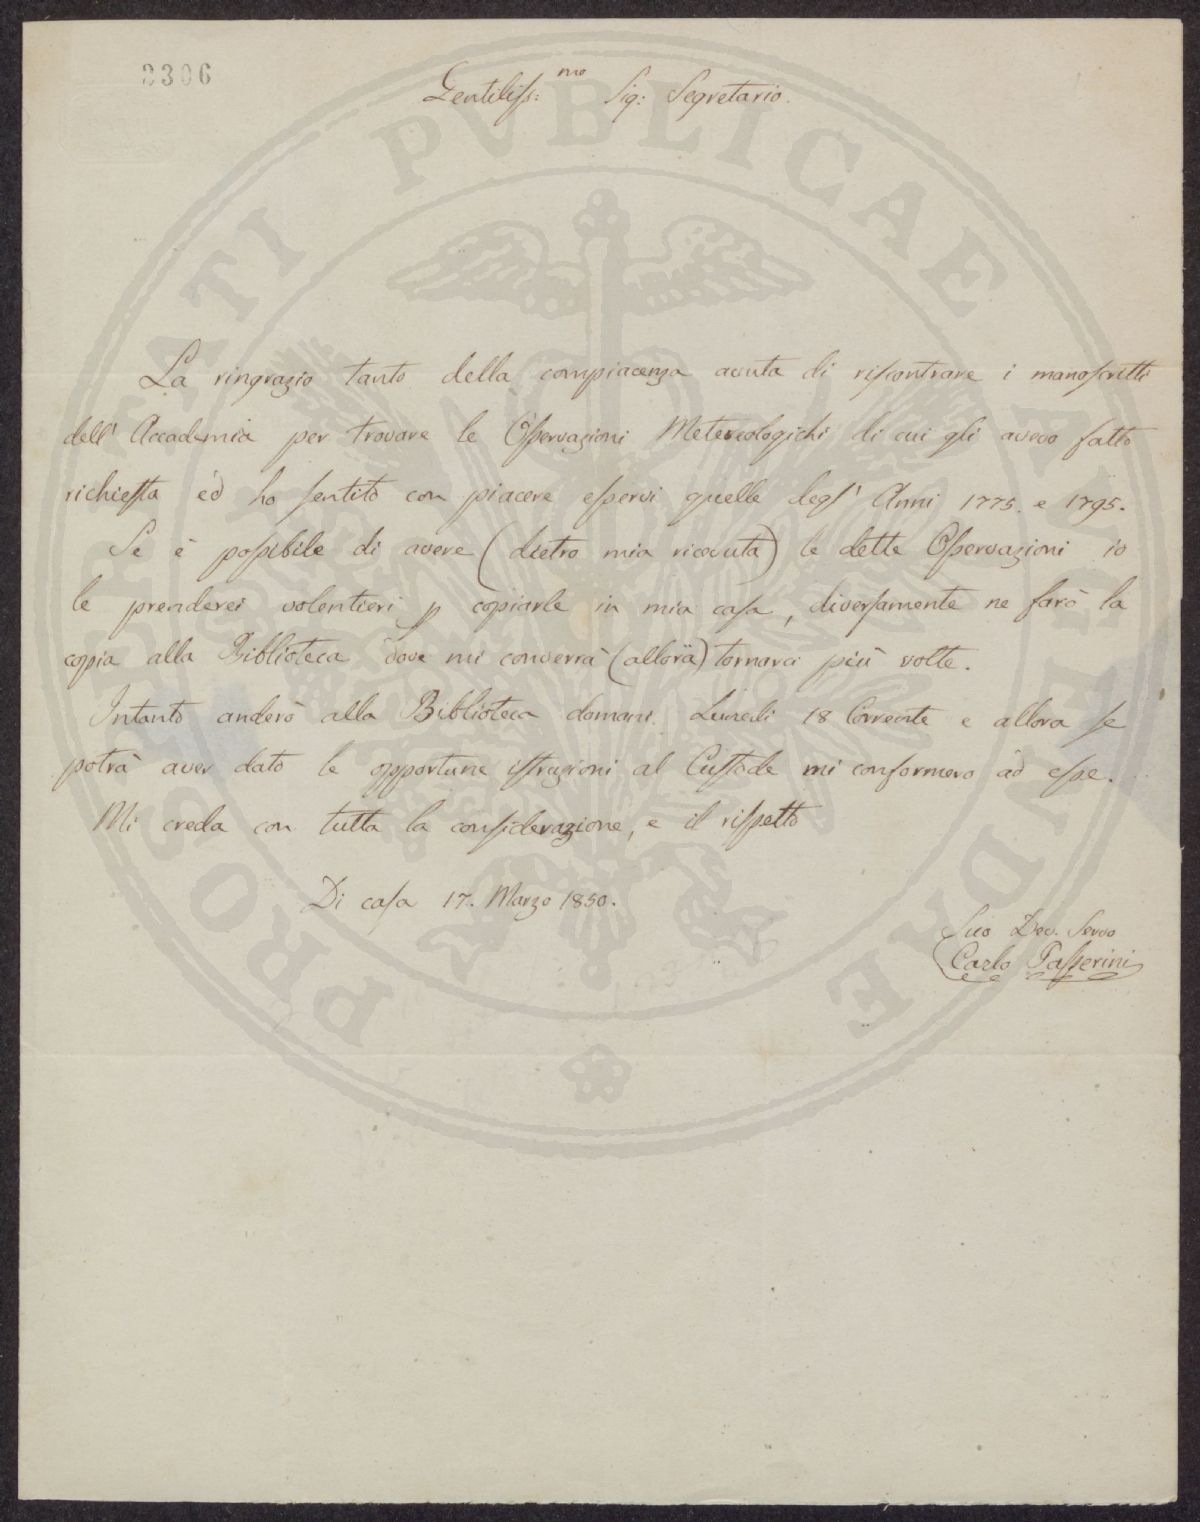 2306
Gentiliss:mo Sig: Segretario.
La ringrazio tanto della compiacenza avuta di riscontrare i manoscritti
dell' Accademia per trovare le Osservazioni Metereologichi di cui gli avevo fatto
richiesta ed ho sentito con piacere esservi quelle degl' Anni 1775. e 1795.
Se è possibile di avere (dietro mia ricevuta) le dette Osservazioni io
le prenderei volentieri p copiarle in mia casa, diversamente ne farò la
copia alla Biblioteca dove mi converrà (allora) tornarci più volte.
Intanto anderò alla Biblioteca domani Lunedi 18 Corrente e allora se
potrà aver dato le opportune istruzioni al Custode mi conformero ad esse.
Mi creda con tutta la considerazione, e il rispetto
Di casa 17. Marzo 1850.
Suo Dev. Servo
Carlo Passerini
PROSPERITATI PVBLICAE AVGENDAE